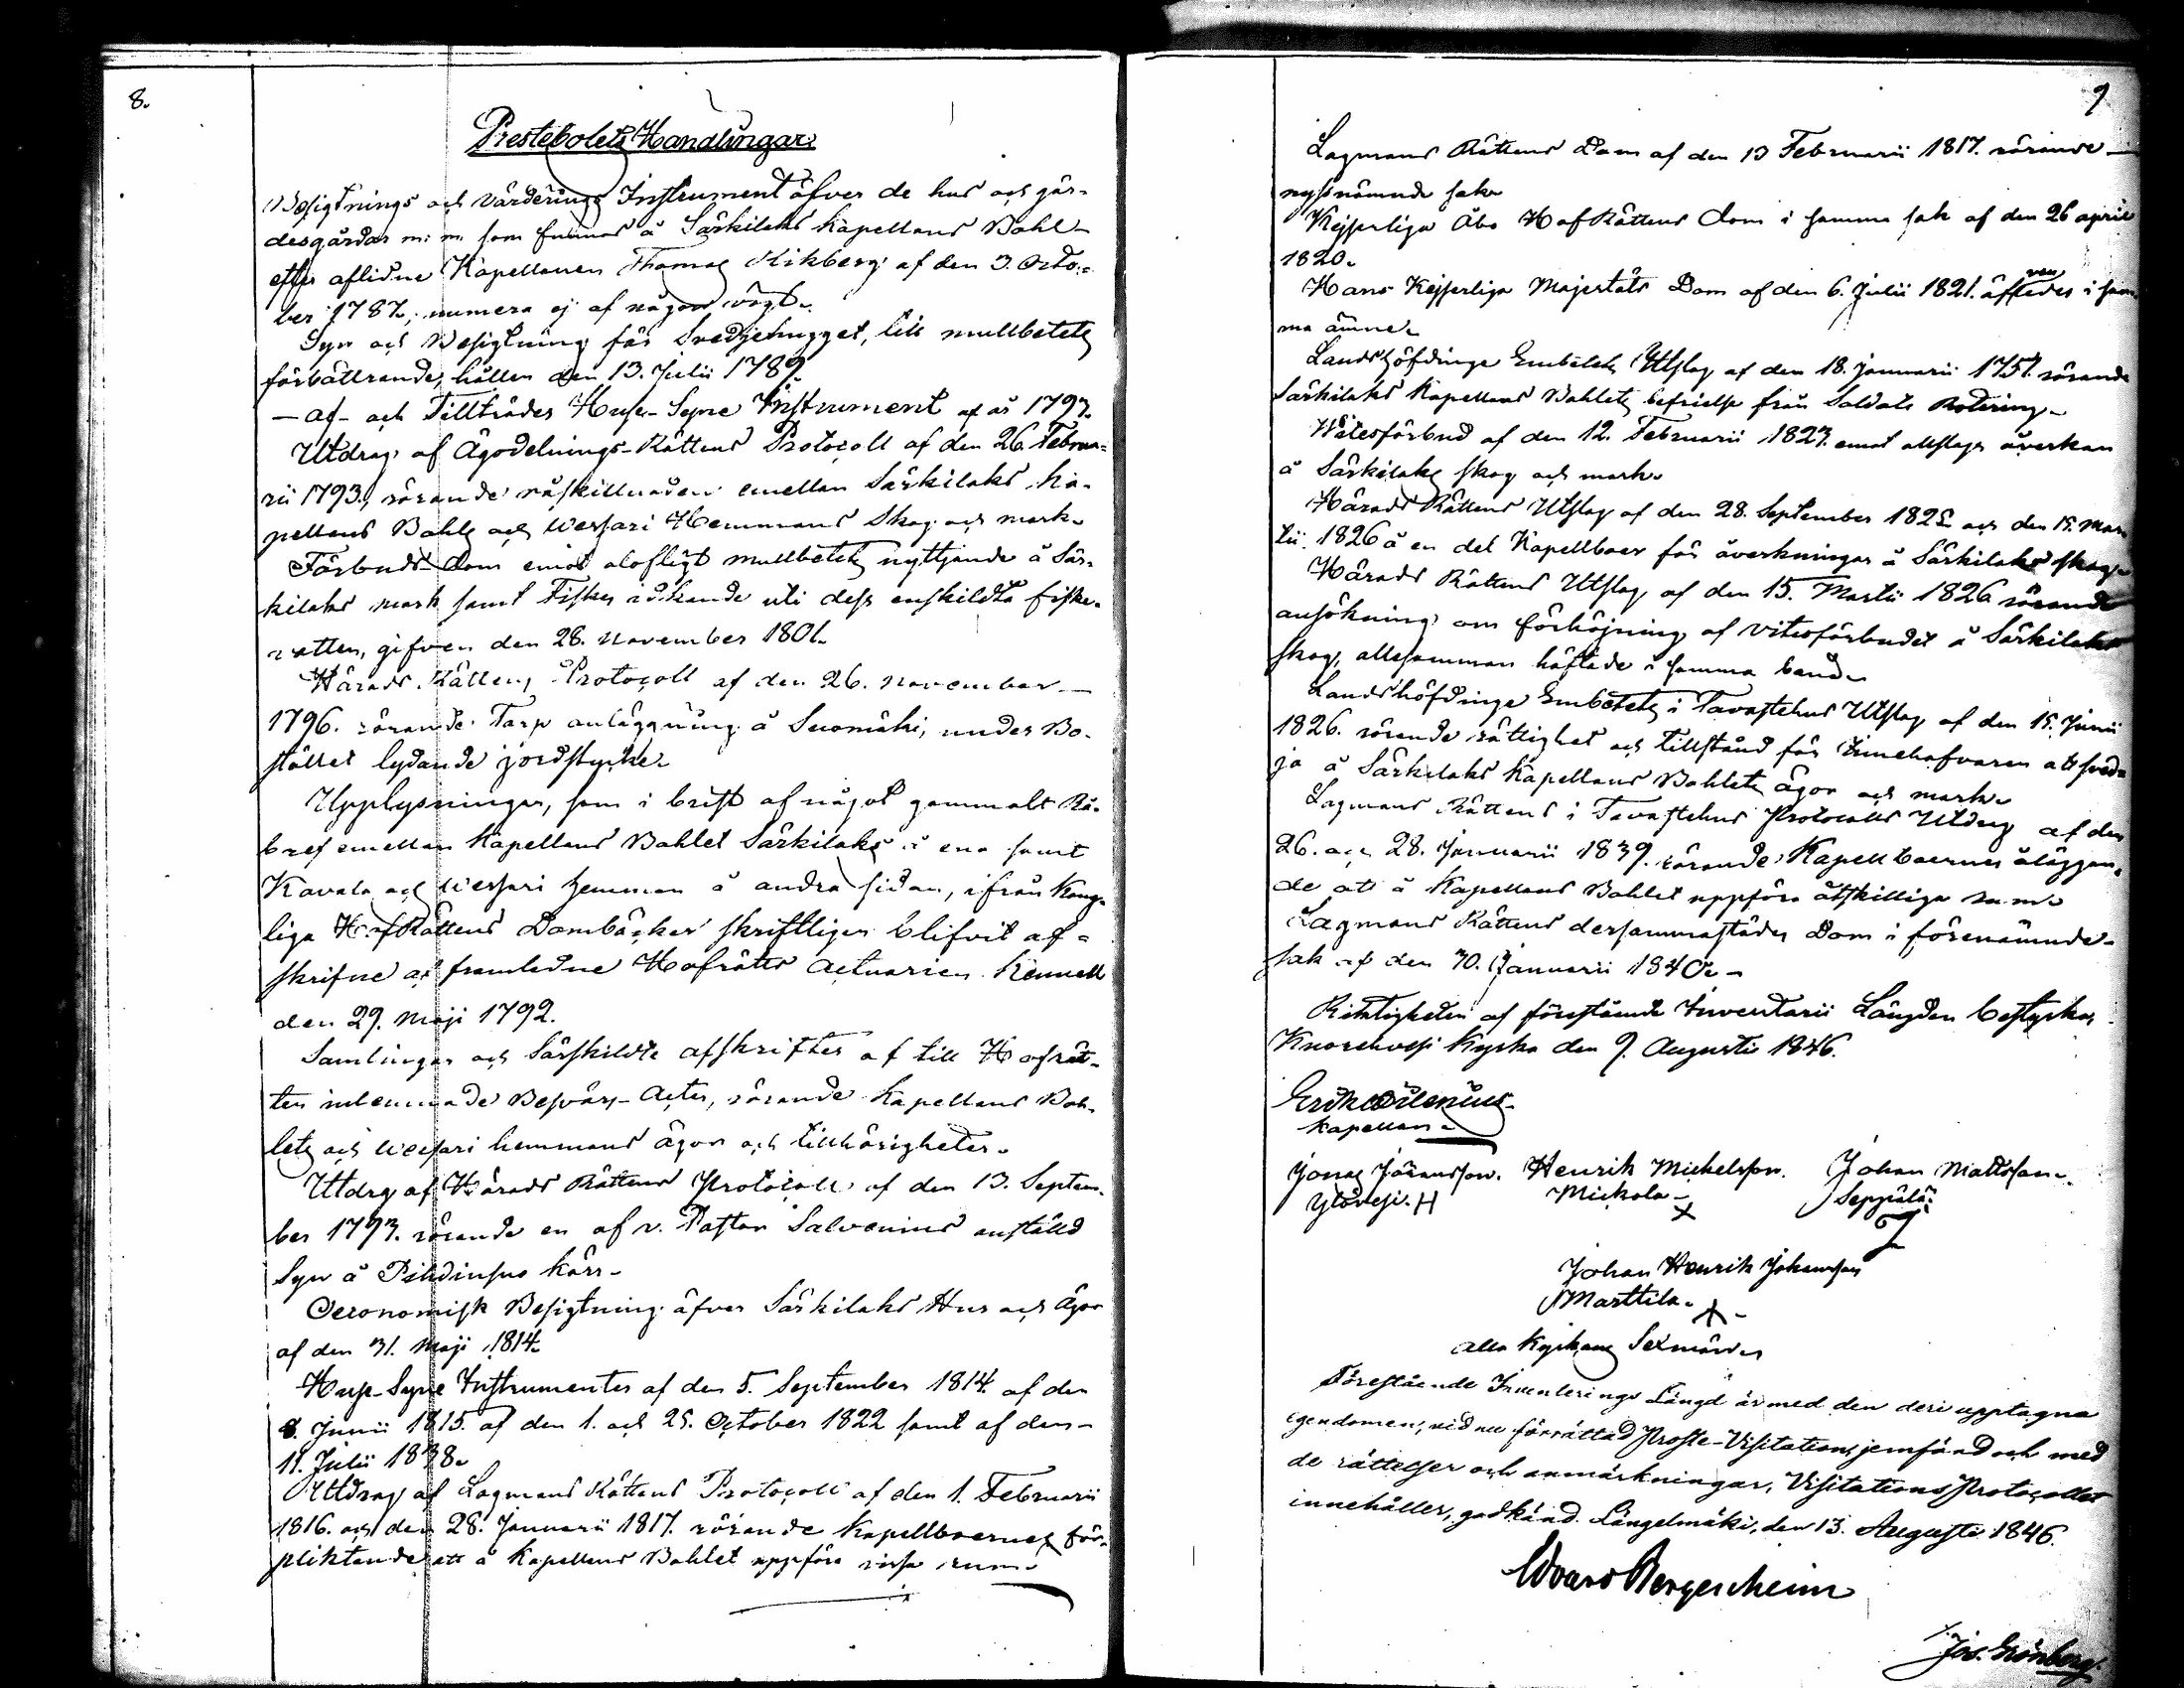 8.
Prestebolets Handlingar.
Besigtnings och värderings Instrument öfver de hus och går-
desgårdar m: m. som funnos å Särkilaks Kapellans Bohl
efter aflidne Kapellanen Thomas Kikberg af den 3. Octo-
ber 1787, numera ej af någon vigt.
Syn och Besigtning för Svedjehygget, till mullbetets
förbättrande, hållen den 13. Julii 1789.
-af- och Tillträdes Huse-Syne Instrument af år 1793.
Utdrag af Ägodelnings-Rättens Protocoll af den 26. Februa-
rii 1793, rörande råskillnaden emellan Särkilaks ka-
pellans Bohls och Wessari Hemmans Skog och mark.
Förbuds Dom emot olofligt mullbetets nyttjande å Sär-
kilaks mark samt Fiskes idkande uti dess enskildta fiske-
vatten, gifven den 28. November 1801.
Härads Rättens Protocoll af den 26. November
1796. rörande Torp anläggning å Suomäki, under Bo-
stället lydande jordstycke.
Upplysningar, som i brist af något gammalt Rå-
bref emellan Kapellans Bohlet Särkilaks å ena samt
Kavala och Wessari hemman å andra sidan, ifrån Kong-
liga HofRättens Domböcker skriftligen blifvit af-
skrifne af framledne Hofrätts Actuarien Kenuell
den 29. Maji 1792.
Samlingar och Särskildte afskrifter af till Hofrät-
ten inlemnade Besvärs-Acter, rörande Kapellans Boh-
lets och Wessari hemmans ägor och tillhörigheter.
Utdrag af Härads Rättens Protocoll af den 13. Septem-
ber 1793. rörande en af v. Pastor Salvenius anställd
Syn å Pihdinsuo kärr.
Oeconomisk Besigtning öfver Särkilaks Hus och Ägor
af den 31. Maji 1814.
Huse-Syne Instrumenter af den 5. September 1814. af den
8. Junii 1815. af den 1. och 25. October 1822 samt af den
11. Julii 1838.
Utdrag af Lagmans Rättens Protocoll af den 1. Februarii
1816. och den 28. Januarii 1817. rörande Kapellboernes för-
pliktande att å Kapellans Bohlet uppföra vissa rum.
9
Lagmans Rättens Dom af den 13 Februarii 1817. rörande
nyssnämnde sak.
Kejserliga Åbo HofRättens Dom i samma sak af den 26 april
1820.
Hans Kejserliga Majestäts Dom af den 6. Julii 1821. äfven i sam-
ma ämne.
Landshöfdinge Embetets Utslag af den 18. Januarii 1757. rörande
Särkilaks Kapellans Bohlets befrielse från Soldats Rotering.
Witesförbud af den 12. Februarii 1823. emot allslags åverkan
å Särkilaks skog och mark.
Härads Rättens Utslag af den 28. September 1825 och den 15. Mar-
tii 1826 å en del Kapellboer för åverkningar å Särkilaks skog.
Härads Rättens Utslag af den 15. Martii 1826 rörande
ansökning om förhöjning af vitesförbudet å Särkilaks
skog, allesamman häftade i samma band.
Landshöfdinge Embetets i Tavastehus Utslag af den 15. Junii
1826. rörande rättighet och tillstånd för Innehafvaren att sved-
ja å Särkilaks Kapellans Bohlets ägor och mark.
Lagmans Rättens i Tavastehus Protocolls Utdrag af den
26. och 28. Januarii 1839. rörande Kapellboernes åläggan-
de att å Kapellans Bohlet uppföra åtskilliga rum.
Lagmans Rättens dersammastädes Dom i förenämnde
sak af den 30. Januarii 1840.
Riktigheten af förestående Inventarii Längden bestyrkes
Kuorehvesi Kyrka den 9. Augusti 1846.
Kapellan.
Jonas Jöransson. Henrik Mickelsson. Johan Mattsson.
Ylövesi. H Mickola X Seppälä.
Johan Henrik Johansson
Marttila.
alla Kyrkans Sexmän
Förestående Inventerings Längd är med den deri upptagna
egendomen, vid nu förrättad Proste-Visitation, jemförd och med
de rättelser och anmärkningar, Visitations Protocollet
innehåller, godkänd. Längelmäki, den 13. Augusti 1846.
Edvard Bergenheim
Jos. Grönberg.